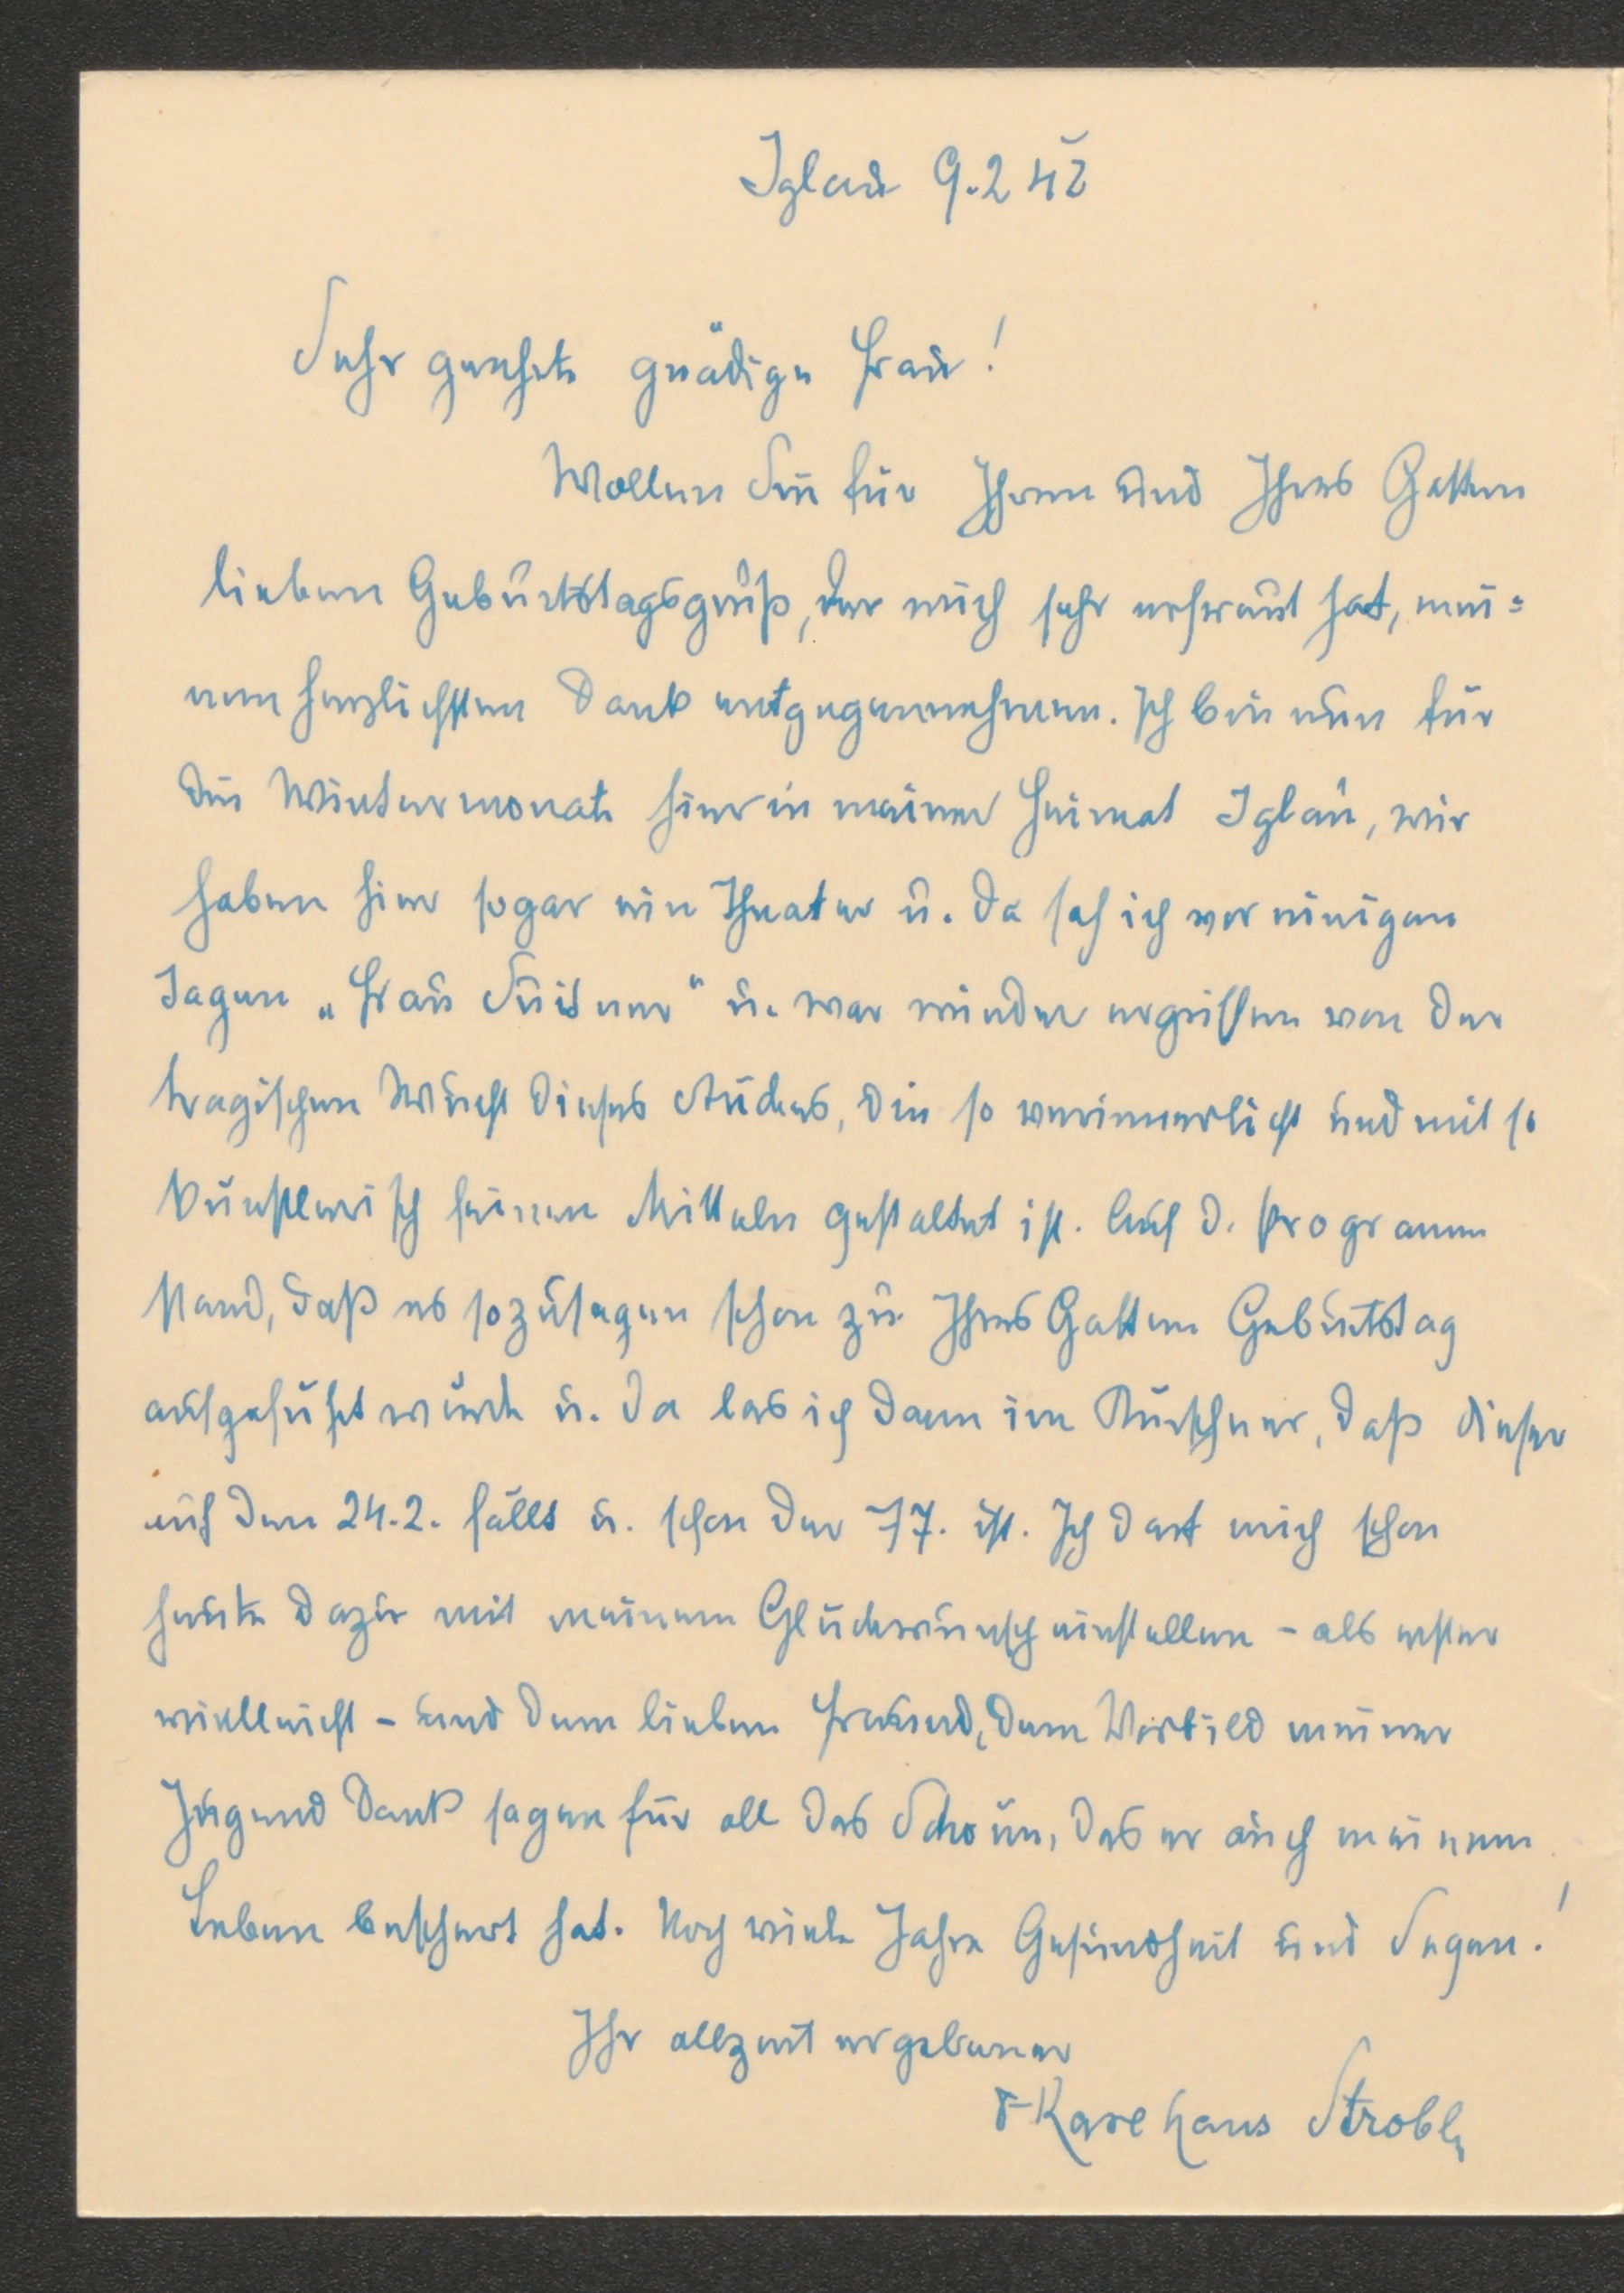 Iglau 9.2 42
Sehr geehrte gnädige Frau!
Wollen Sie für Ihren und Ihres Gatten
lieben Geburtstagsgruß, der mich sehr erfreut hat, mei=
nen herzlichsten Dank entgegennehmen. Ich bin nun für
die Wintermonate hier in meiner Heimat Iglau, wir
haben hier sogar ein Theater u. da sah ich vor einigen
Tagen „Frau Suitner" u. war wieder ergriffen von der
tragischen Wucht dieses Stückes, die so verinnerlicht und mit so
künstlerisch feinen Mitteln gestaltet ist. Auf d. Programm
stand, daß es sozusagen schon zu Ihres Gatten Geburtstag
aufgeführt wurde u. da las ich dann im Kürschner, daß dieser
auf den 24.2. fällt u. schon der 77. ist. Ich darf mich schon
heute dazu mit meinem Glückwunsch einstellen - als erster
vielleicht - und dem lieben Freund, dem Vorbild meiner
Jugend Dank sagen für all das Schöne, das er auch meinem
Leben beschert hat. Noch viele Jahre Gesundheit und Segen!
Ihr allzeit ergebener
Karl Hans Strobl